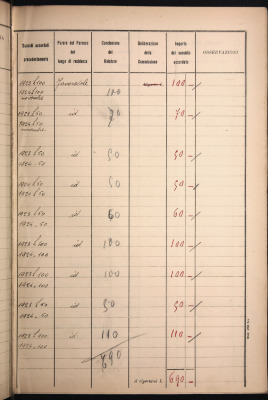 Sussidi accordati precedentemente
Parere del Parroco del luogo di residenza
Conclusione del Relatore
Deliberazione della Commissione
Importo del sussidio accordato
OSSERVAZIONI
1923 £100 Favorevole 100 100
1924 £100
1923 £50 id 70 70
1924 50
1923 £50 id 50 50
1924 £50
1924 £50 id 50 50
1923 £50 id 60 60
1924. 50
1923 £100 id 100 100
1924. 100
1923 £100 id 100 100
1924. 100
1923 £50 id 50 50
1924. 50
1923 £100 id 110 110
1924. 100
690
A riportarsi L. 690